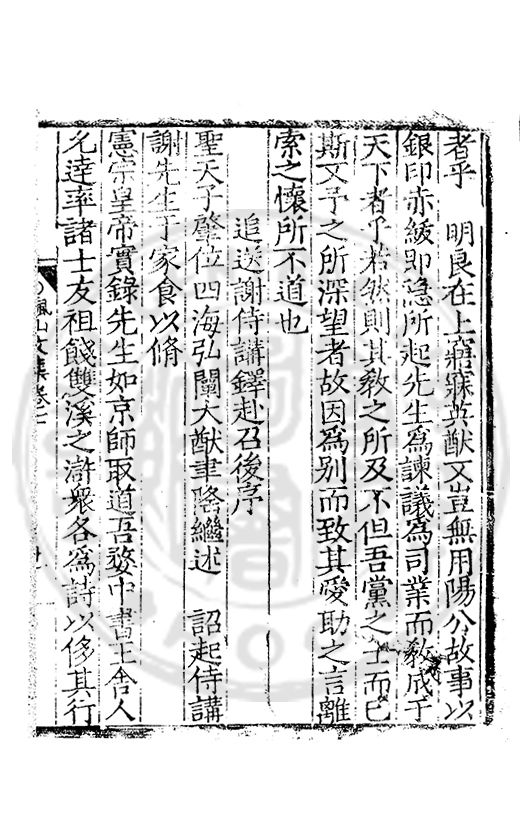 者乎 明良在上寤寐英猷又豈無用陽公故事以
銀印赤紱即隱所起先生爲諫議爲司業而教成于
天下者乎若然則其教之所及不但吾黨之士而已
斯又予之所深望者故因爲别而致其愛助之言離
索之懷所不道也
追送謝侍講鐸赴召後序
聖天子肇位四海弘闡大猷聿隆繼述 詔起侍講
謝先生于家食以脩
憲宗皇帝實錄先生如京師取道吾婺中書王舍人
允達率諸士友祖餞雙溪之滸衆各爲詩以侈其行
楓山文集卷二